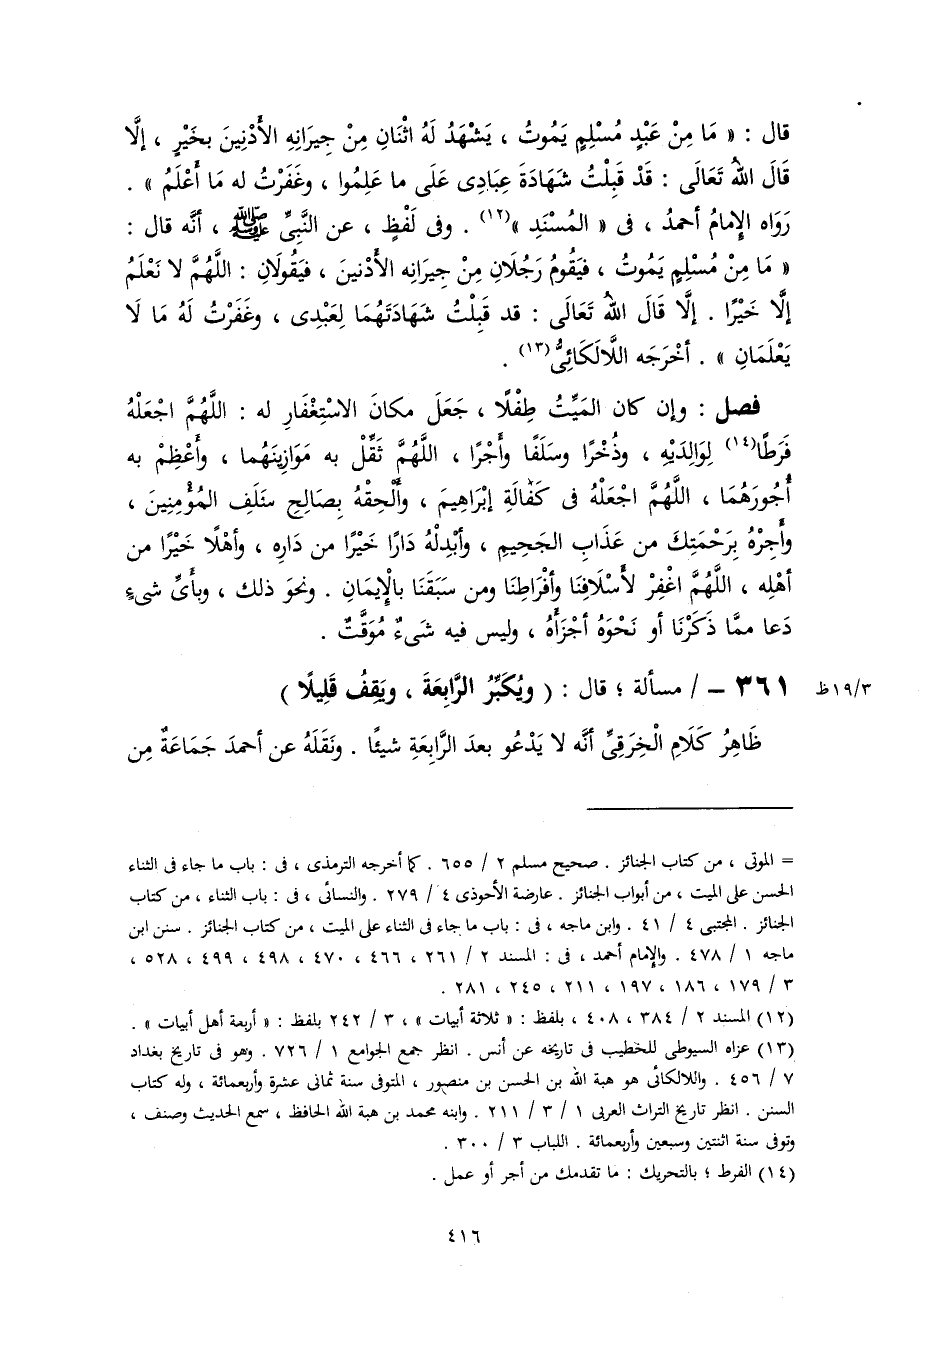 قال : « مَا مِنْ عَبْدٍ مُسْلِمٍ يَمُوتُ ، يَشْهَدُ لَهُ اثْنَانِ مِنْ جِيرَانِهِ الأَدْنِينَ بخَيْرٍ ، إلَّا
قَالَ اللهُ تَعَالَى : قَدْ قَبِلْتُ شَهَادَةَ عِبَادِى عَلَى ما عَلِمُوا ، وغَفَرْتُ له مَا أَعْلَمُ » .
رَوَاه الإِمامُ أحمدُ ، فى « المُسْنَدِ »(١٢) . وفى لَفْظٍ ، عن النَّبِىِّ ﷺ ، أنَّه قال :
« مَا مِنْ مُسْلِمٍ يَمُوتُ ، فيَقُومُ رَجُلَانِ مِنْ جِيرَانِه الأَدْنينَ ، فيَقُولَانِ : اللَّهُمَّ لا نَعْلَمُ
إلَّا خَيْرًا . إلَّا قَالَ اللهُ تَعَالَى : قد قَبِلْتُ شَهَادَتَهُمَا لِعَبْدِى ، وغَفَرْتُ لَهُ مَا لَا
يَعْلَمَانِ » . أخْرَجَه اللَّالَكَائِىُّ(١٣) .
فصل : وإن كان المَيِّتُ طِفْلًا ، جَعَلَ مكانَ الاسْتِغْفَارِ له : اللَّهُمَّ اجْعَلْهُ
فَرَطًا(١٤) لِوَالِدَيْهِ ، وذُخْرًا وسَلَفًا وأَجْرًا ، اللَّهُمَّ ثَقِّلْ به مَوَازِينَهُما ، وأَعْظِمْ به
أُجُورَهُمَا ، اللَّهُمَّ اجْعَلْهُ فى كَفَالَةِ إبْرَاهِيمَ ، وأَلْحِقْهُ بِصَالِحِ سَلَفِ المُؤْمِنِينَ ،
وأَجِرْهُ بِرَحْمَتِكَ من عَذَابِ الجَحِيمِ ، وأبْدِلْهُ دَارًا خَيْرًا من دَارِه ، وأهْلًا خَيْرًا من
أهْلِه ، اللَّهُمَّ اغْفِرْ لأَسْلَافِنَا وأفْرَاطِنَا ومن سَبَقَنَا بالْإِيمَانِ . ونحوَ ذلك ، وبأَىِّ شىءٍ
دَعا ممَّا ذَكَرْنَا أو نَحْوَهُ أجْزَأَهُ ، وليس فيه شَىءٌ مُوَقَّتٌ .
٣٦١ – / مسألة ؛ قال : ( ويُكَبِّرُ الرَّابِعَةَ ، ويَقِفُ قَلِيلًا )
١٩/٣ظ
ظَاهِرُ كَلَامِ الْخِرَقِىِّ أنَّه لا يَدْعُو بعدَ الرَّابِعَةِ شيئًا . ونَقَلَهُ عن أحمدَ جَمَاعَةٌ مِن
= الموتى ، من كتاب الجنائز . صحيح مسلم ٢ / ٦٥٥ . كما أخرجه الترمذى ، فى : باب ما جاء فى الثناء
الحسن على الميت ، من أبواب الجنائز . عارضة الأحوذى ٤ / ٢٧٩ . والنسائى ، فى : باب الثناء ، من كتاب
الجنائز . المجتبى ٤ / ٤١ . وابن ماجه ، فى : باب ما جاء فى الثناء على الميت ، من كتاب الجنائز . سنن ابن
ماجه ١ / ٤٧٨ . والإمام أحمد ، فى : المسند ٢ / ٢٦١ ، ٤٦٦ ، ٤٧٠ ، ٤٩٨ ، ٤٩٩ ، ٥٢٨ ،
٣ / ١٧٩ ، ١٨٦ ، ١٩٧ ، ٢١١ ، ٢٤٥ ، ٢٨١ .
(١٢) المسند ٢ / ٣٨٤ ، ٤٠٨ ، بلفظ : « ثلاثة أبيات » ، ٣ / ٢٤٢ بلفظ : « أربعة أهل أبيات » .
(١٣) عزاه السيوطى للخطيب فى تاريخه عن أنس . انظر جمع الجوامع ١ / ٧٢٦ . وهو فى تاريخ بغداد
٧ / ٤٥٦ . واللالكائى هو هبة الله بن الحسن بن منصور ، المتوفى سنة ثمانى عشرة وأربعمائة ، وله كتاب
السنن . انظر تاريخ التراث العربى ١ / ٣ / ٢١١ . وابنه محمد بن هبة الله الحافظ ، سمع الحديث وصنف ،
وتوفى سنة اثنتين وسبعين وأربعمائة . اللباب ٣ / ٣٠٠ .
(١٤) الفرط ؛ بالتحريك : ما تقدمك من أجر أو عمل .
٤١٦